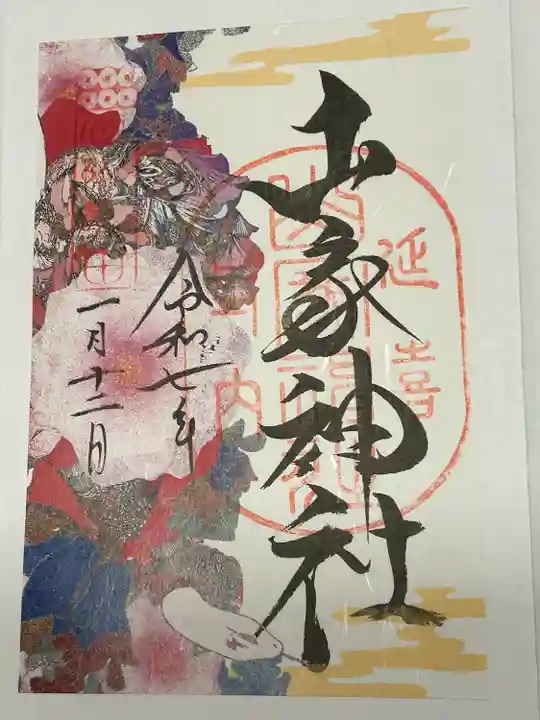 山家神社
延喜
式内
令和七年
一月十二日